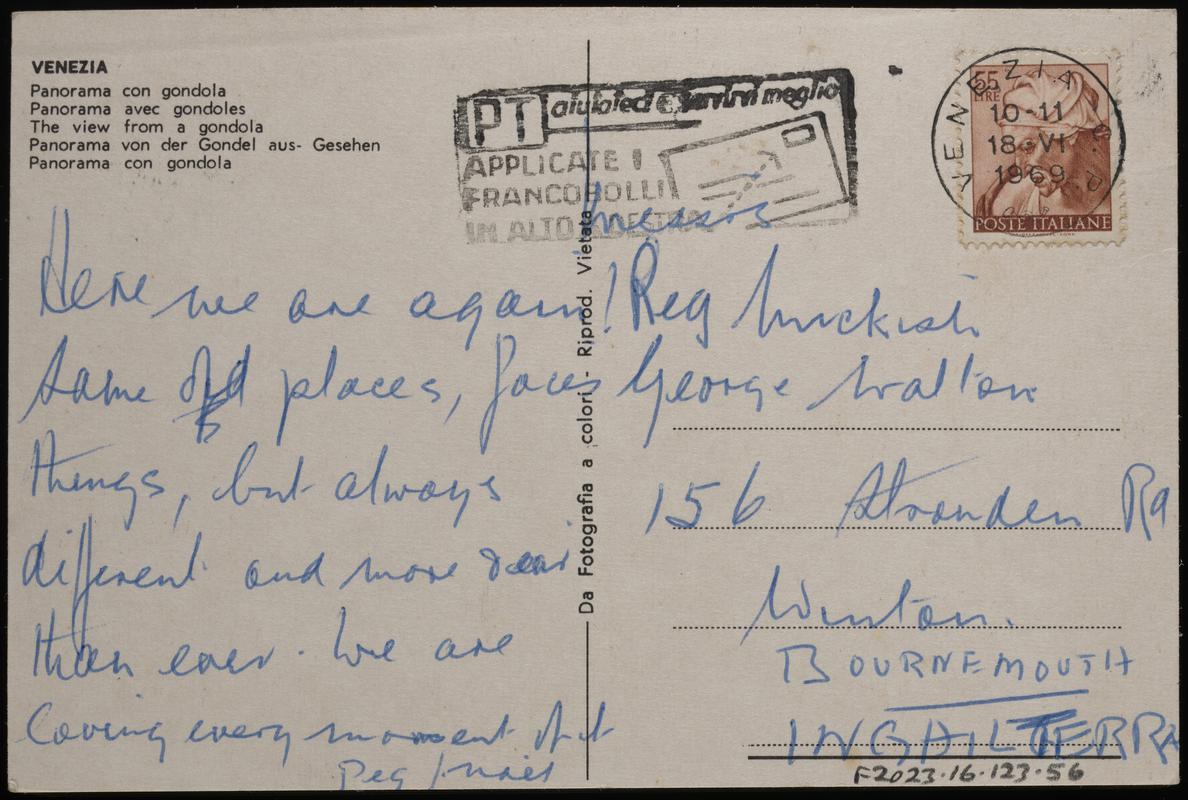 VENEZIA
Panorama con gondola
Panorama avec gondoles
The view from a gondola
Panorama von der Gondel aus- Gesehen
Panorama con gondola
PT aiutateci a servirvi meglio
APPLICATE I
FRANCOBOLLI
IN ALTO A DESTRA
55
LIRE
VENEZIA
10-11
18-VI
1969
POSTE ITALIANE
Here we are again!
Same old places, faces
things, but always
different and more dear
than ever. We are
loving every moment of it
Da Fotografia a colori - Riprod. Vietata
Messrs
Reg
George Walton
156 Rd
Winton.
BOURNEMOUTH
INGHILTERRA
F2023.16.123.56